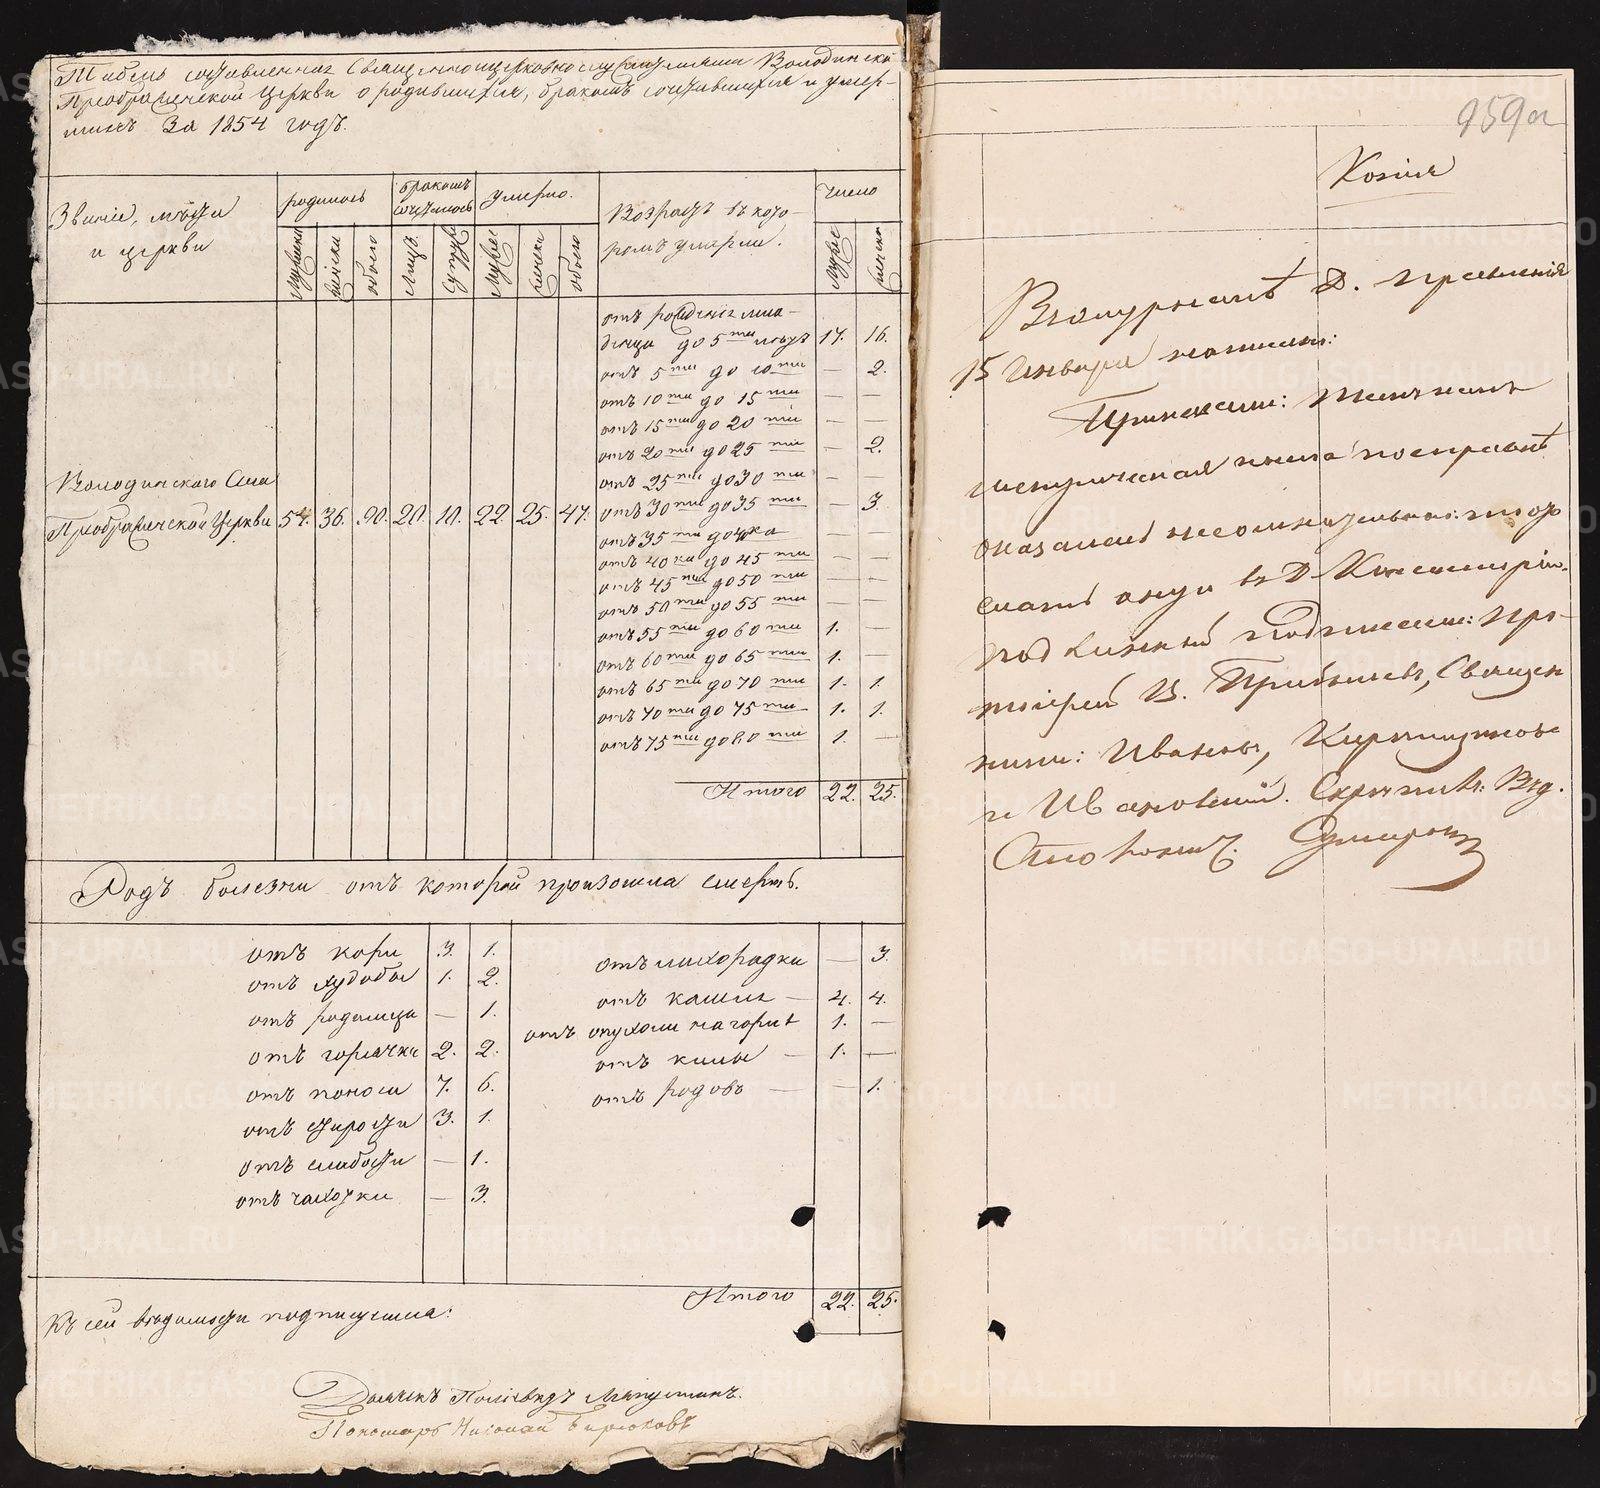 Табель составленная Священноцерковнослужителями Володинской
Преображенской Церкви о родившихся, бракомъ сочетавшихся и умер-
шихъ За 1854 годъ.
Званіе, мѣста
и церкви
родилось
бракомъ
сочеталось
умерло.
Возрастъ въ кото-
ромъ умерли.
число
мужеска
женска
обоего
лицъ
супруж
мужес
женска
обоего
мужес
женска
отъ рожденія мла-
денца до 5ти лѣтъ 17. 16.
отъ 5ти до 10ти — 2.
отъ 10ти до 15ти — —
отъ 15ти до 20ти — —
отъ 20ти до 25ти — 2.
отъ 25ти до 30ти — —
Володинского Села
Преображенской Церкви 54. 36. 90. 20. 10. 22. 25. 47.
отъ 30ти до 35ти — 3.
отъ 35ти до 40ка — —
отъ 40ка до 45ти — —
отъ 45ти до 50ти — —
отъ 50ти до 55ти — —
отъ 55ти до 60ти 1. —
отъ 60ти до 65ти 1. —
отъ 65ти до 70ти 1. 1.
отъ 70ти до 75ти 1. 1.
отъ 75ти до 80ти 1. —
Итого 22. 25.
Родъ болезни отъ которой произошла смерть.
отъ кори 3. 1.
отъ худобы 1. 2.
отъ родимца — 1.
отъ горячки 2. 2.
отъ поноса 7. 6.
отъ старости 3. 1.
отъ слабости — 1.
отъ чахотки — 3.
отъ лихорадки — 3.
отъ кашля — 4. 4.
отъ опухоли на горлѣ 1. —
отъ килы — 1. —
отъ родовъ — — 1.
Итого 22. 25.
Къ сей вѣдомости подписуемся:
Дьячекъ Поліевктъ Ляпустинъ.
Пономарь Николай Бирюковъ
959а
Копія
В журналѣ Д. Правленія
15 Января написано:
Приказали:
метрическая книга по справкѣ
оказалась
въ Д. Консисторію.
под линный подписали: Про-
тоіерей И. Прибылевъ, Священ
ники: Ивановъ, Кирпищиковъ
и Ивановскій. Скрѣпилъ:
METRIKI.GASO-URAL.RU